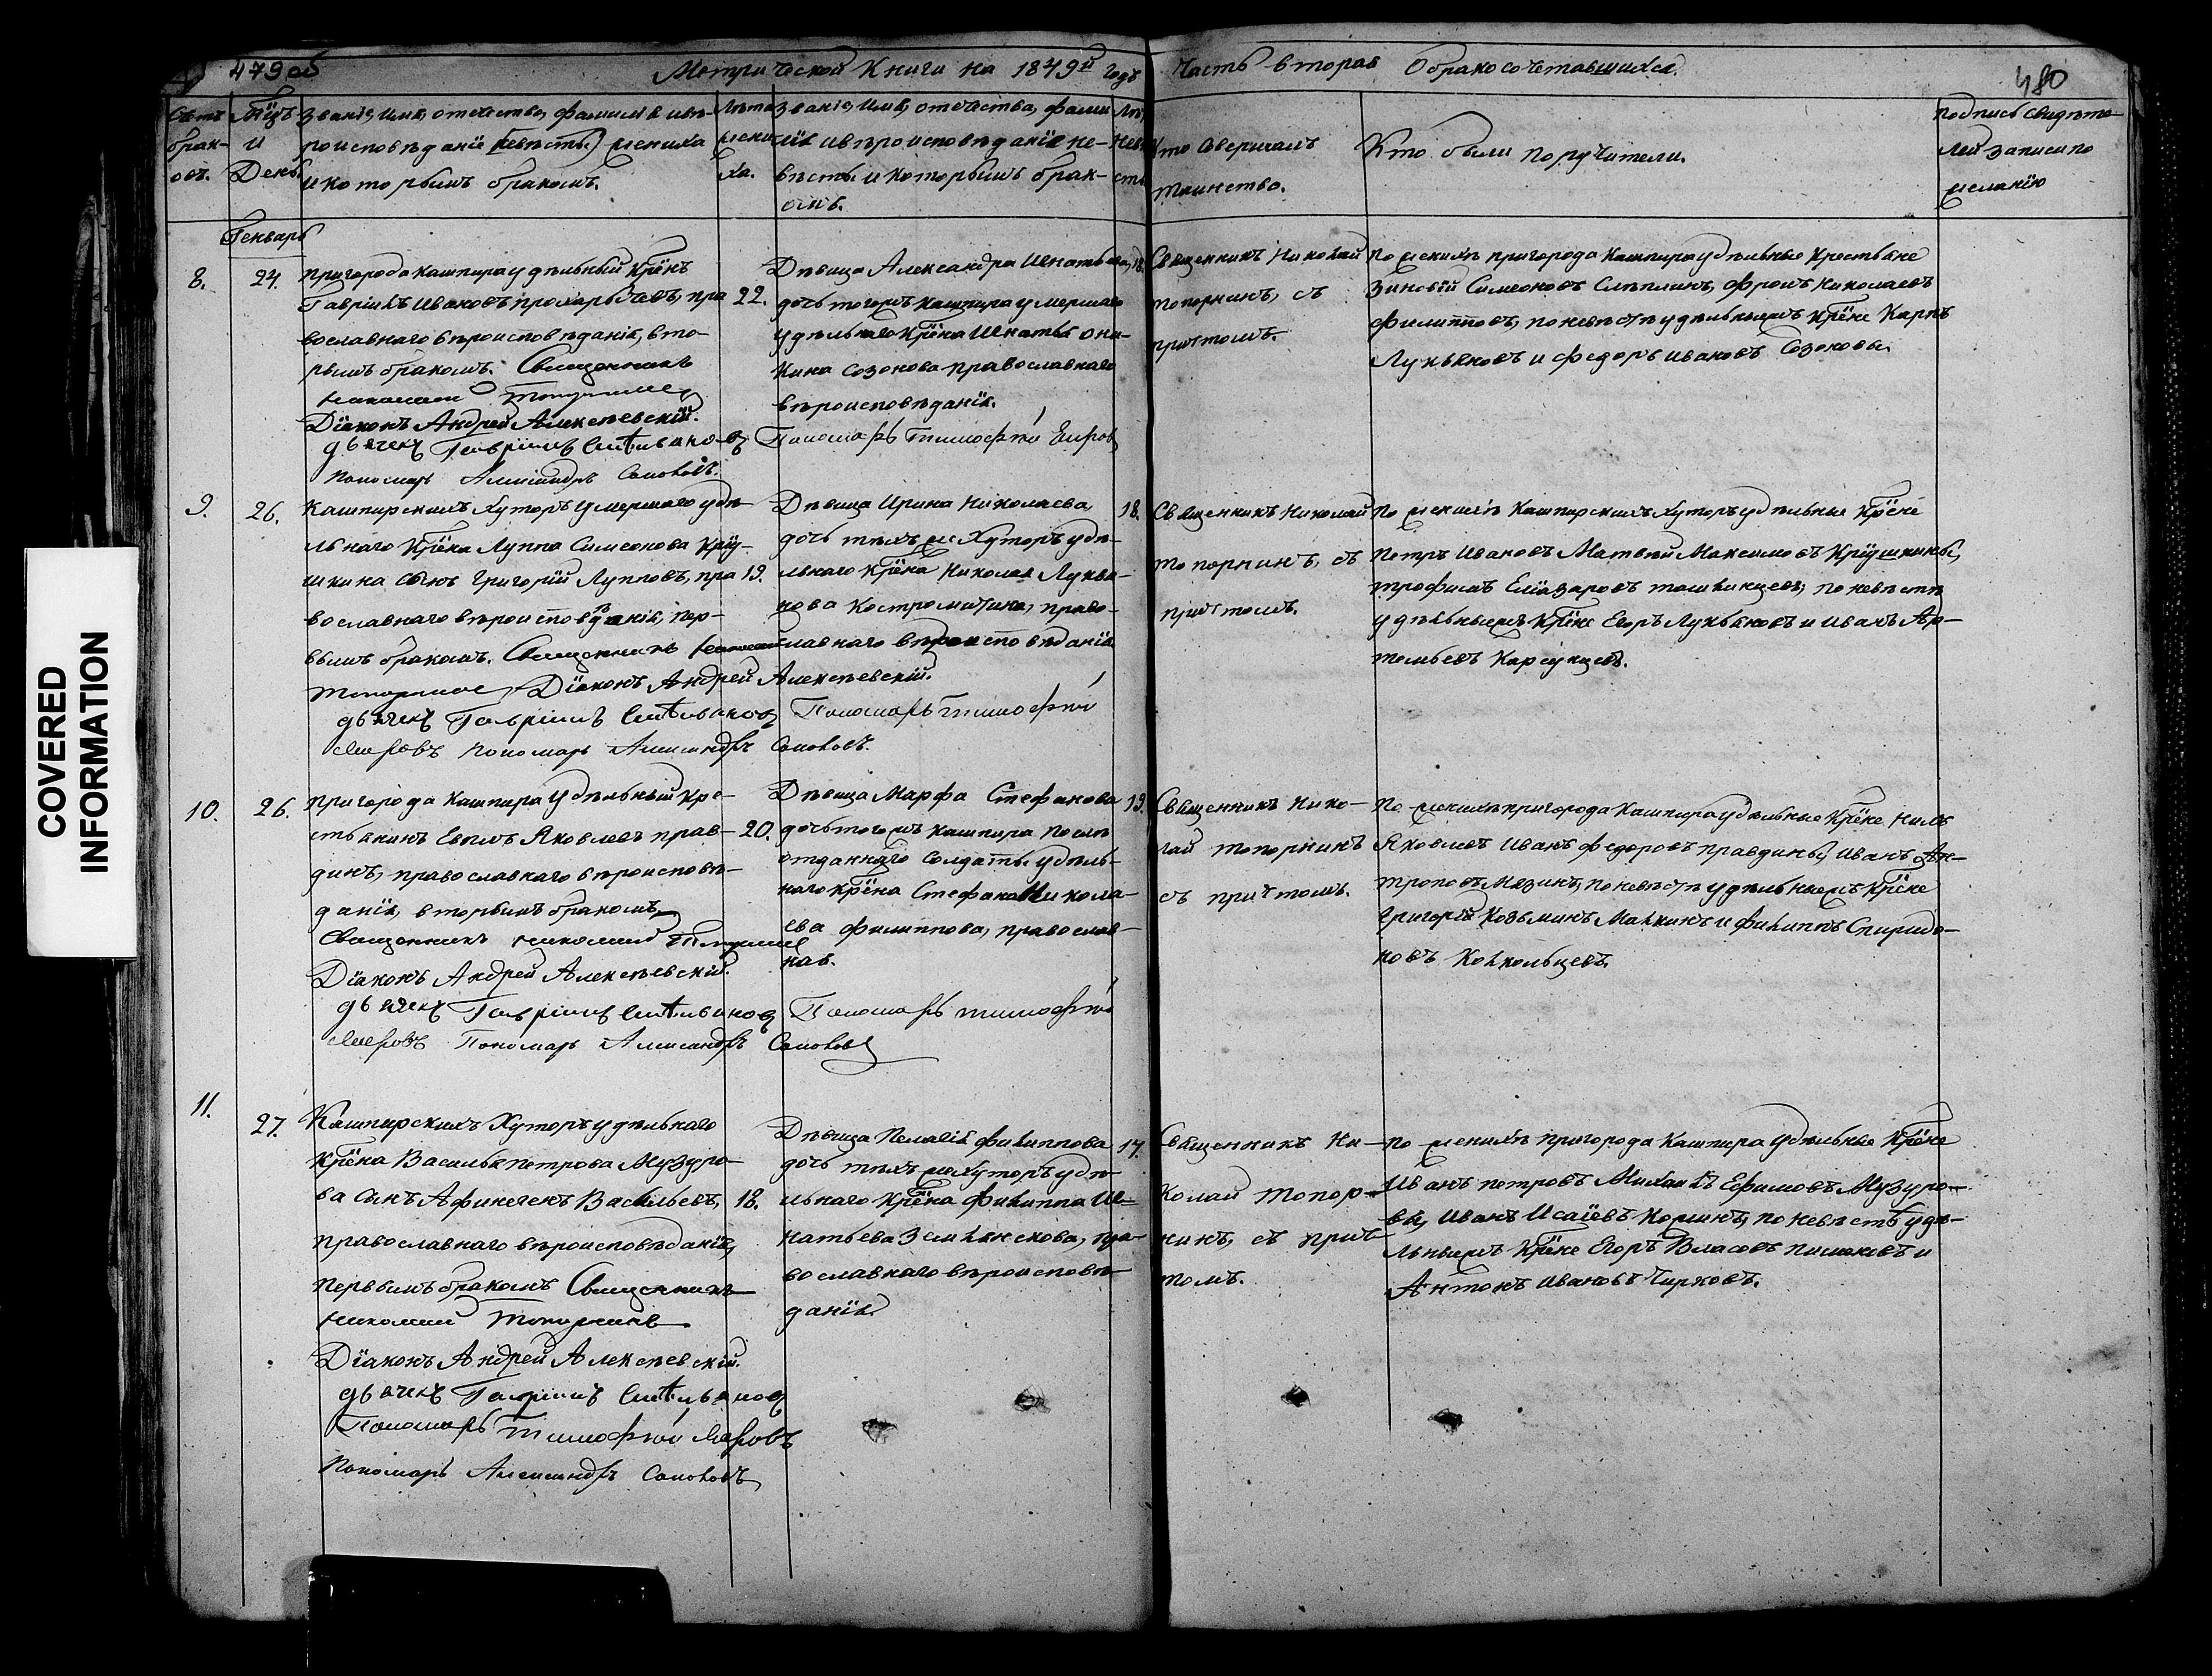 479 об
Метрической Книги на 1849й годъ
Часть вторая О бракосочетавшихся.
480
Счетъ
брак-
овъ.
Мцъ
и
День.
Званіе, имя, отечество, фамилія и вѣ-
роисповѣданіе (невѣсты) жениха
и которымъ бракомъ.
Лѣта
жени
ха.
Званіе, имя, отечество, фами
лія и вѣроисповѣданіе не-
вѣсты и которымъ брак-
омъ.
Лѣ
Нев
сты
Кто совершалъ
таинство.
Кто были поручители.
Подпись свидѣте
лей записи по
желанію
Генварь
8.
24.
пригорода Кашпира удѣльный Крѣнъ
Гавріилъ Ивановъ прохарычевъ, пра
вославнаго вѣроисповѣданія, вто-
рымъ бракомъ. Священникъ
Николай Топорнинъ
Діаконъ Андрей Алексѣевскій.
дьячекъ Гавріилъ Силивановъ
Пономарь Тимофѣй
Пономарь Александръ Соколовъ.
22.
Дѣвица Александра Игнатьева,
дочь тогожъ Кашпира умершаго
удѣльнаго Крѣна Игнатья Они-
кина Созонова православнаго
вѣроисповѣданія.
18.
Священникъ Николай
Топорнинъ, съ
причтомъ.
По женихѣ пригорода Кашпира удѣльные Крестьяне
Зиновій Симеоновъ Слѣплинъ, Фролъ Николаевъ
Филипповъ, по невѣстѣ удѣльныежъ Крѣне Карпъ
Лукьяновъ и Федоръ Ивановъ Созоновы.
9.
26.
Кашпирскихъ Хуторъ умершаго удѣ
льнаго Крѣна Луппа Симеонова Кру-
шкина сынъ Григорій Лупповъ, пра
вославнаго вѣроисповѣданія, пер-
вымъ бракомъ. Священникъ Николай
Топорнинъ, Діаконъ Андрей Алексѣевскій.
дьячекъ Гавріилъ Силивановъ
Пономарь Тимофѣй
Пономарь Александръ Соколовъ.
19.
Дѣвица Ирина Николаева,
дочь тѣхъ же Хуторъ удѣ-
льнаго Крѣна Николая Лукья-
нова Костромитина, право-
славнаго вѣроисповѣданія
18.
Священникъ Николай
Топорнинъ, съ
причтомъ.
По женихѣ Кашпирскихъ Хуторъ удѣльные Крѣне
Петръ Ивановъ Матвѣй Максимовъ Крушкины,
Трофимъ Еліазаровъ по невѣстѣ
удѣльныежъ Крѣне Егоръ Лукьяновъ и Иванъ Ар-
темьевъ
10.
26.
пригорода Кашпира удѣльный Кре-
стьянинъ Евплъ Яковлевъ прав-
динъ, православнаго вѣроисповѣ-
данія, вторымъ бракомъ,
Священникъ Николай Топорнинъ
Діаконъ Андрей Алексѣевскій.
дьячекъ Гавріилъ Силивановъ
Пономарь Тимофѣй
Пономарь Александръ Соколовъ
20.
Дѣвица Марфа Стефанова
дочь тогожъ Кашпира
отданнаго Солдаты удѣль-
наго Крѣна Стефана Никола-
ева Филиппова, православ-
ная.
19.
Священникъ Нико-
лай Топорнинъ
съ причтомъ.
По женихѣ пригорода Кашпира удѣльные Крѣне Нилъ
Яковлевъ Иванъ Федоровъ правдины, Иванъ Ан-
троповъ Мязинъ, по невѣстѣ удѣльныежъ Крѣне
Григорій Козьминъ Малкинъ и Филиппъ Спиридо-
новъ Колкольцевъ.
11.
27.
Кашпирскихъ Хуторъ удѣльнаго
Крѣна Василья петрова Музуро-
ва Сынъ Афиногенъ Васильевъ,
православнаго вѣроисповѣданія,
первымъ бракомъ Священникъ
Николай Топорнинъ
Діаконъ Андрей Алексѣевскій.
дьячекъ Гавріилъ Силивановъ
Пономарь Тимофѣй
Пономарь Александръ Соколовъ
18.
Дѣвица Пелагія Филиппова
дочь тѣхъ же Хуторъ удѣ-
льнаго Крѣна Филиппа Иг-
натьева Землянскова, пра-
вославнаго вѣроисповѣ-
данія.
17.
Священникъ Ни-
колай Топор-
нинъ, съ прич-
томъ.
По женихѣ пригорода Кашпира удѣльные Крѣне
Иванъ петровъ Михаилъ Ефимовъ Музуро-
вы, Иванъ Исаіевъ по невѣстѣ удѣ-
льныежъ Крѣне Егоръ Власовъ и
Антонъ Ивановъ Чирковъ.
COVERED
INFORMATION